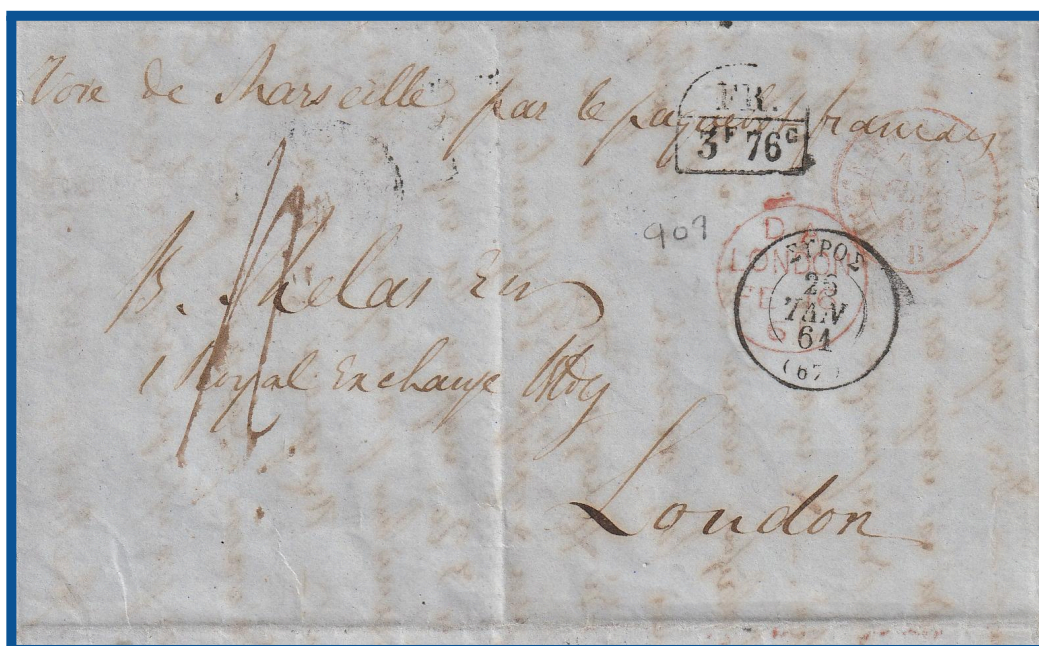 Voie de Marseille, par le paquebot français
FR.
3F 76C
907
D A
LONDON
FE 6
6
ΣΥΡΟΣ
25
ΙΑΝ
61
(67)
B. Skelas
1 Royal Exchange Bldg
London